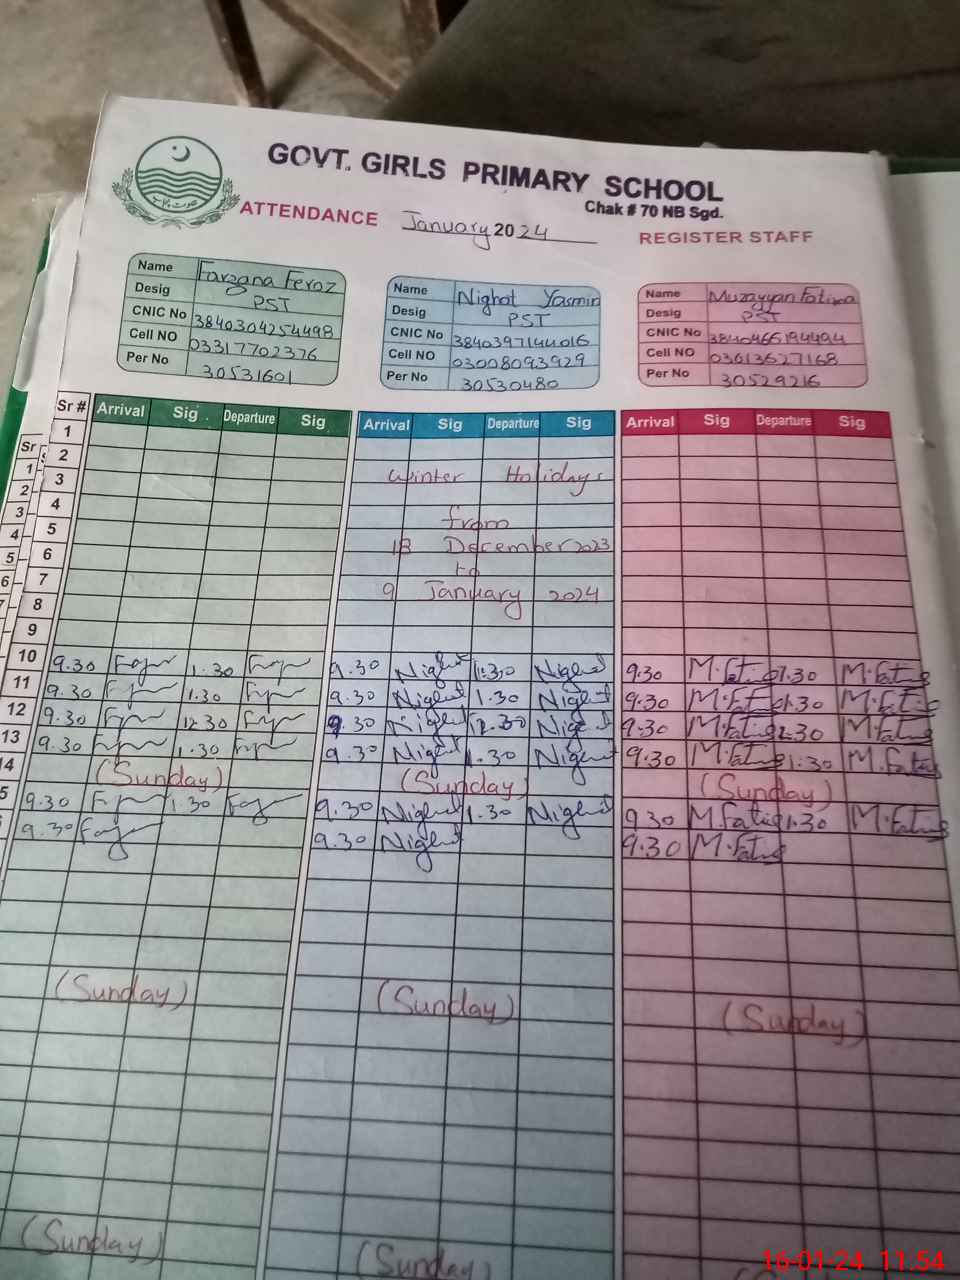 GOVT. GIRLS PRIMARY SCHOOL
Chak # 70 NB Sgd.
ATTENDANCE January 2024 REGISTER STAFF
Name Farzana Feroz
Desig PST
CNIC No 3840304254498
Cell NO 03317702376
Per No 30531601
Name Nighat Yasmin
Desig PST
CNIC No 3840397144016
Cell NO 03008093929
Per No 30530480
Name Muzayyan Fatima
Desig PST
CNIC No 3840465194494
Cell NO 03013627168
Per No 30529216
Sr # Arrival Sig . Departure Sig Arrival Sig Departure Sig Arrival Sig Departure Sig
1
2
3 Winter Holidays
4 from
5 18 December 2023
6 to
7 9 January 2024
8
9
10 9.30 1.30 9.30 Nighat 1.30 Nighat 9.30 M.Fatima 1.30 M.Fatima
11 9.30 1.30 9.30 Nighat 1.30 Nighat 9.30 M.Fatima 1.30 M.Fatima
12 9.30 12.30 9.30 Nighat 12.30 Nighat 9.30 M.Fatima 12.30 M.Fatima
13 9.30 1.30 9.30 Nighat 1.30 Nighat 9.30 M.Fatima 1.30 M.Fatima
14 (Sunday) (Sunday) (Sunday)
5 9.30 1.30 9.30 Nighat 1.30 Nighat 9 30 M.Fatima 1.30 M.Fatima
9.30 9.30 Nighat 9.30 M.Fatima
(Sunday) (Sunday) (Sunday)
(Sunday) (Sunday)
Sr
1
2
3
4
5
6
16-01-24 11:54